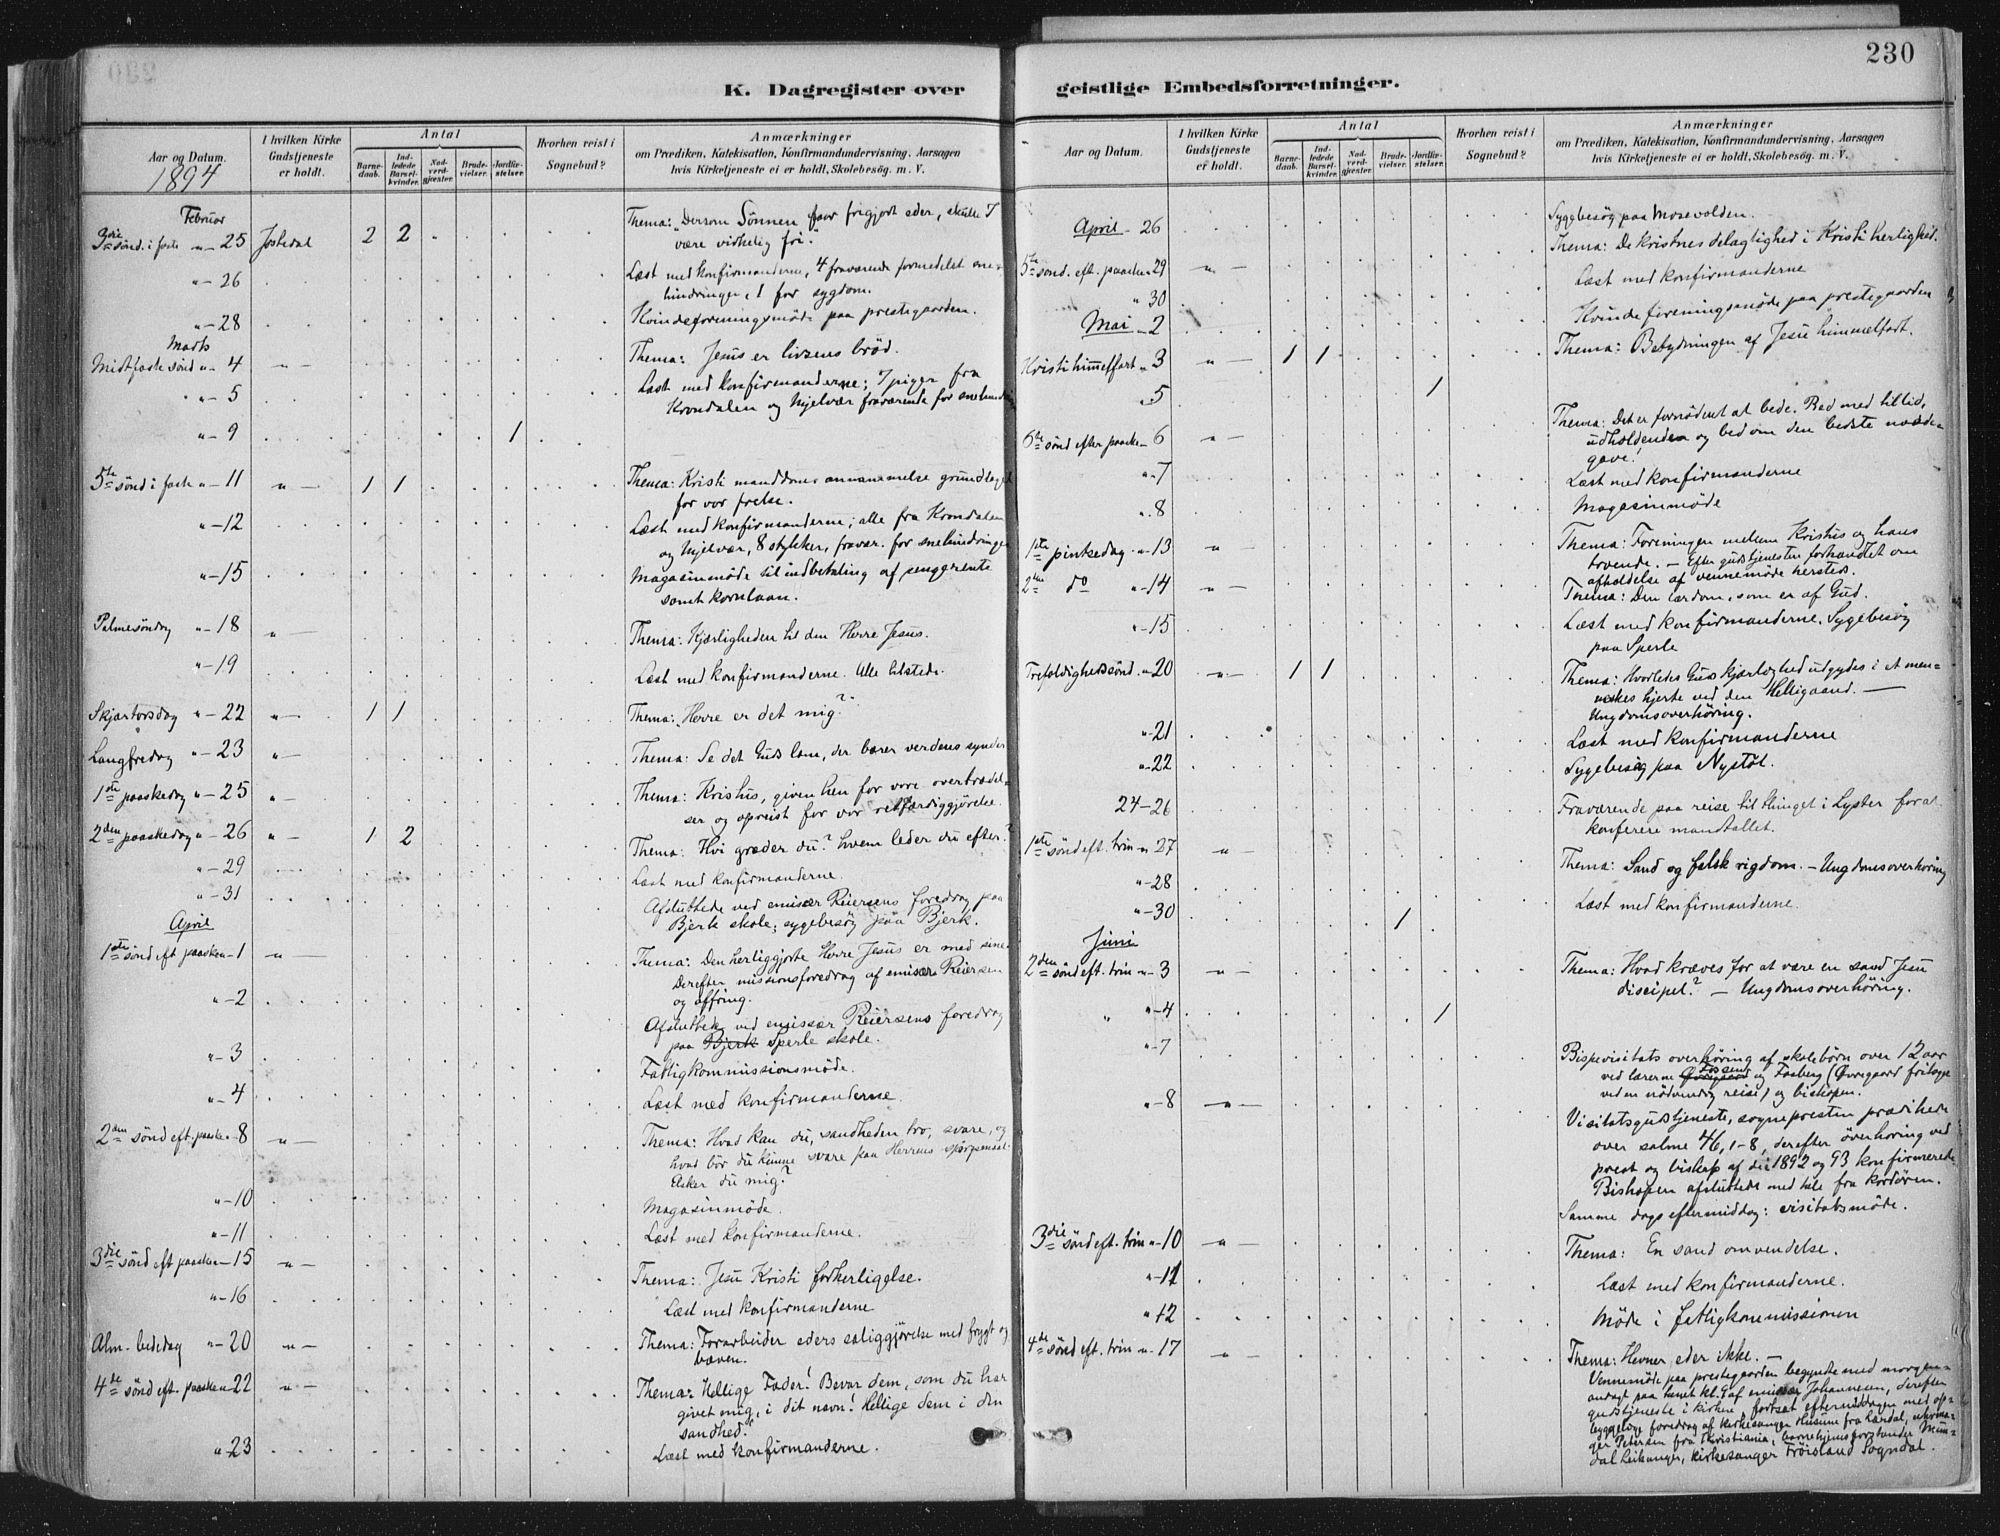 230
K. Dagregister over
geistlige Embedsforretninger.
Aar og Datum.
1894
I hvilken Kirke
Gudstjeneste
er holdt.
Antal
Barne-
daab.
Ind-
ledede
Barsel-
kvinder.
Nad-
verd-
gjæster.
Brude-
vielser.
Jordfæ-
stelser.
Hvorhen reist i
Sognebud?
Anmærkninger
om Prædiken, Katekisation, Konfirmandundervisning, Aarsagen
hvis Kirketjeneste ei er holdt, Skolebesøg. m. V.
Februar
3die sønd. i faste " - 25 Jostedal 2 2 Thema: "Dersom Sønnen faar frigjort eder, skulle I
være virkelig fri."
" - 26 Læst med konfirmanderne, 4 fraværende formedelst sne-
hindringer, 1 for sygdom.
" - 28 Kvindeforeningsmøde paa prestegaarden.
Marts
Midtfaste sønd " - 4 " - Thema: Jesus er livsens brød.
" - 5 Læst med konfirmanderne; 7 piger fra
Krondalen og Mjelvær fraværende for snehindring
" - 9 1
5te sønd i faste " - 11 " - 1 1 Thema: Kristi manddoms annammelse grundlaget
for vor frelse.
" - 12 Læst med konfirmanderne; alle fra Krondalen
og Mjelvær, 8 stykker, fravær. for snehindringer
" - 15 Magasinmøde til indbetaling af pengerente
samt kornlaan.
Palmesøndag " - 18 " - Thema: Kjærligheden til den Herre Jesus.
" - 19 Læst med konfirmanderne. Alle tilstede.
Skjærtorsdag " - 22 " - 1 1 Thema: "Herre er det mig?"
Langfredag " - 23 " - Thema: Se det Guds lam, der bærer verdens synder
1ste paaskedag " - 25 " - Thema: Kristus, given hen for vore overtrædel-
ser og opreist for vor retfærdiggjørelse.
2den paaskedag " - 26 " - 1 2 Thema: Hvi græder du? hvem leder du efter?
" - 29 Læst med konfirmanderne.
" - 31 Afsluttede ved emisær Reiersens foredrag paa
Bjerk skole; sygebesøg paa Bjerk.
April
1ste sønd eft paasken - 1 " - Thema: Den herliggjorte Herre Jesus er med sine.
Derefter missionsforedrag af emisær Reiersen
og offring.
" - 2 Afsluttede ved emissær Reiersens foredrag
paa Bjerk Sperle skole.
" - 3 Fattigkommissionsmøde.
" - 4 Læst med konfirmanderne
2den sønd eft. paaske - 8 " - Thema: Hvad kan du, sandheden tro, svare, og
hvad bør du kunne svare paa Herrens spørgsmaal:
Elsker du mig?
" - 10 Magasinmøde.
" - 11 Læst med konfirmanderne.
3die sønd eft paasken - 15 " - Thema: Jesu Kristi forherligelse.
" - 16 Læst med konfirmanderne
Alm. bededag " - 20 " - Thema: Forarbeider eders saliggjørelse med frygt og
bæven.
4de sønd eft. paasken - 22 " - Thema: Hellige Fader! Bevar dem, som du har
givet mig, i dit navn! Hellige dem i din
sandhed.
" - 23 Læst med konfirmanderne.
Aar og Datum.
I hvilken Kirke
Gudstjeneste
er holdt.
Antal
Barne-
daab.
Ind-
ledede
Barsel-
kvinder.
Nad-
verd-
gjæster.
Brude-
vielser.
Jordfæ-
stelser.
Hvorhen reist i
Sognebud?
Anmærkninger
om Prædiken, Katekisation, Konfirmandundervisning, Aarsagen
hvis Kirketjeneste ei er holdt, Skolebesøg. m. V.
April - 26 Sygebesøg paa Mosevolden.
5te sønd. eft. paasken 29 " - Thema: De kristnes delagtighed i Kristi herlighed.
" 30 Læst med konfirmanderne
Mai - 2 Kvindeforeningsmøde paa prestegaarden
Kristi himmelfart " 3 " - 1 1 Thema: Betydningen af Jesu himmelfart.
" 5 1
6te sønd efter paaske - 6 " - Thema: Det er fornødent at bede. Bed med tillid,
udholdenhed og bed om den bedste naade-
gave!
" - 7 Læst med konfirmanderne
" 8 Magasinmøde
1ste pintsedag " - 13 " - Thema: Foreningen mellem Kristus og hans
troende. - Efter gudstjenesten forhandlet om
afholdelse af vennemøde hersteds.
2den do " - 14 " - Thema: Den lærdom, som er af Gud.
" - 15 Læst med konfirmanderne. Sygebesøg
paa Sperle
Trefoldighedssønd. " 20 " - 1 1 Thema: Hvorledes Guds kjærlighed udgydes i et men-
neskes hjerte ved den Helligaand. -
Ungdomsoverhøring.
" - 21 Læst med konfirmanderne
" - 22 Sygebesøg paa Nystøl.
24 - 26 Fraværende paa reise til thinget i Lyster for at
konferere mandtallet.
1ste sønd eft. trin " 27 " - Thema: Sand og falsk rigdom. - Ungdomsoverhøring
" - 28 Læst med konfirmanderne.
" - 30 1
Juni
2den sønd eft. trin " - 3 " - Thema: Hvad kræves for at være en sand Jesu
discipel? - Ungdomsoverhøring.
" " - 4 1
" - 7 Bispevisitats overhøring af skolebørn over 12 aar
ved lærerne Øvregaard og Faaberg (Øvregaard fritoges
ved en nødvendig reise) og biskopen.
" - 8 " - Visitatsgudstjeneste, sognepresten prædikede
over salme 46, 1-8, derefter overhøring ved
prest og biskop af de i 1892 og 93 konfirmerede
Bishopen afsluttede med tale fra kordøren.
Samme dags eftermiddag: visitatsmøde.
3die sønd eft. trin " - 10 " - Thema: En sand omvendelse.
" - 11 Læst med konfirmanderne.
" 12 Møde i fattigkommissionen
4de sønd eft. trin " - 17 " - Thema: Hevner eder ikke. -
Vennemøde paa prestegaarden begyndte med morgen-
andagt paa tunet kl. 9 af emisær Johannesen, derefter
gudstjeneste i kirken, fortsat eftermiddagen med op-
byggelige foredrag af kirkesanger Husum fra Lærdal,
ger Petersen fra Kristiania, barnehjemsforstander Mun-
dal Leikanger, kirkesanger Frøisland Sogndal.